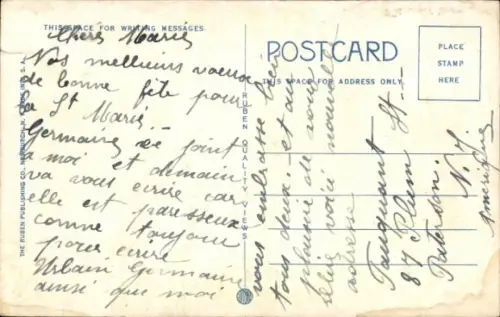 THIS SPACE FOR WRITING MESSAGES
Chers Maries
Nos meilleurs voeux
de bonne fête pour
la St Marie.
Germaine se joint
a moi et demain
va vous écrire car
elle est paresseuse
comme toujour
pour écrire
Urbain Germaine
ainsi que moi
vous embrasse bien
tous deux. et au
plaisir de vous
voici nouvelle
adresse
POSTCARD
THIS SPACE FOR ADDRESS ONLY
PLACE
STAMP
HERE
87 Plum St
Paterson.
N. J.
THE RUBEN PUBLISHING CO., NEWBURGH, N. Y. MADE IN U. S. A.
RUBEN QUALITY VIEWS